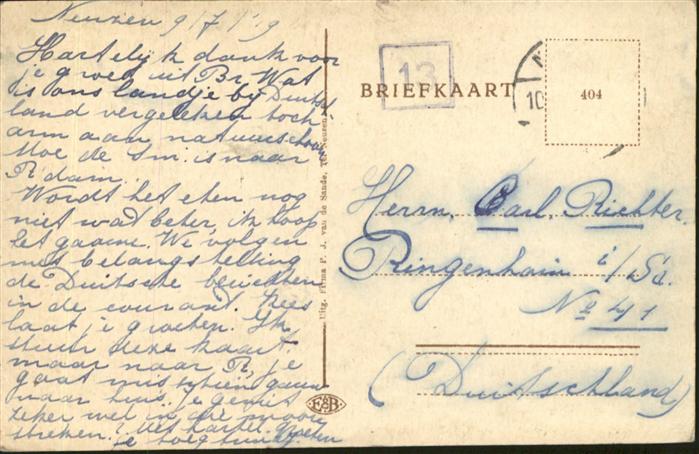 Neuzen 9/7 19
Hartelijk dank voor
je g wel uit Br. Wat
is ons landje bij Duitsch
land vergeleken toch
arm aan natuurschoon
Hoe de is naar
R'dam.
Wordt het eten nog
niet wat beter, ik hoop
het gaarne. We volgen
met belangstelling
de Duitsche berichten
in de courant. Kees
laat je groeten. Ik
stuur deze kaart
maar naar R, je
gaat misschien gauw
naar huis. Je geniet
zeker wel in die mooie
streken? Met hartel. groeten
je toegen.
Uitg. Firma P. J. van de Sande, Ter Neuzen
E&B
13
BRIEFKAART
10
404
Herrn, Carl, Richter.
Ringenhain i/Sa.
No 41
(Duitschland)